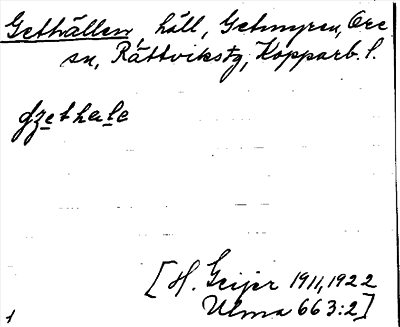 Gethällen, häll, Getmyren, Ore
sn, Rättvikstg, Kopparb. l.
[H. Geijer 1911, 1922
Ulma 663:2]
1